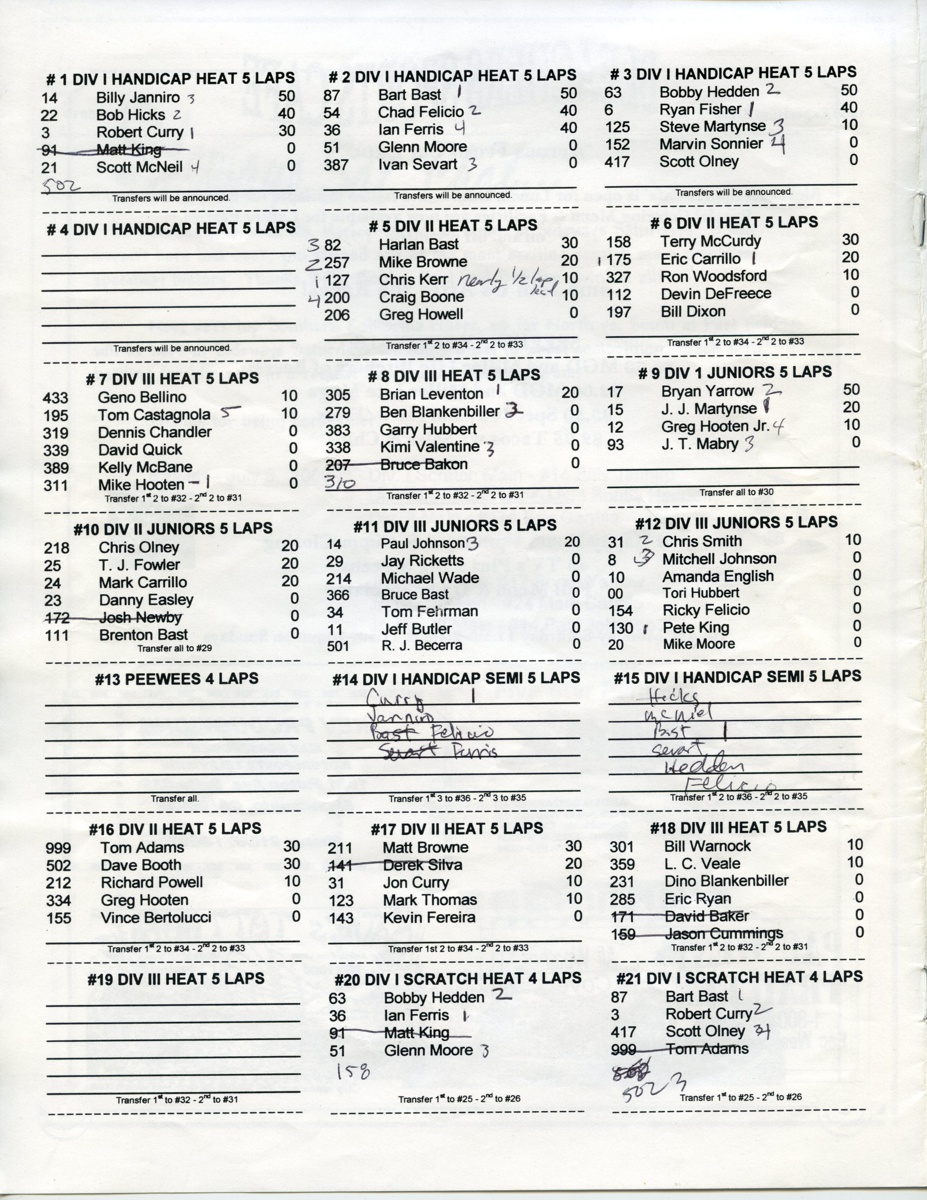 # 1 DIV I HANDICAP HEAT 5 LAPS
14 Billy Janniro 3 50
22 Bob Hicks 2 40
3 Robert Curry 1 30
91 Matt King 0
21 Scott McNeil 4 0
502
Transfers will be announced.
# 2 DIV I HANDICAP HEAT 5 LAPS
87 Bart Bast 1 50
54 Chad Felicio 2 40
36 Ian Ferris 4 40
51 Glenn Moore 0
387 Ivan Sevart 3 0
Transfers will be announced.
# 3 DIV I HANDICAP HEAT 5 LAPS
63 Bobby Hedden 2 50
6 Ryan Fisher 1 40
125 Steve Martynse 3 10
152 Marvin Sonnier 4 0
417 Scott Olney 0
Transfers will be announced.
# 4 DIV I HANDICAP HEAT 5 LAPS
Transfers will be announced.
# 5 DIV II HEAT 5 LAPS
3 82 Harlan Bast 30
2 257 Mike Browne 20
1 127 Chris Kerr nearly 1/2 lap lead 10
4 200 Craig Boone 10
206 Greg Howell 0
Transfer 1st 2 to #34 - 2nd 2 to #33
# 6 DIV II HEAT 5 LAPS
158 Terry McCurdy 30
1 175 Eric Carrillo 1 20
327 Ron Woodsford 10
112 Devin DeFreece 0
197 Bill Dixon 0
Transfer 1st 2 to #34 - 2nd 2 to #33
# 7 DIV III HEAT 5 LAPS
433 Geno Bellino 10
195 Tom Castagnola 5 10
319 Dennis Chandler 0
339 David Quick 0
389 Kelly McBane 0
311 Mike Hooten - 1 0
Transfer 1st 2 to #32 - 2nd 2 to #31
# 8 DIV III HEAT 5 LAPS
305 Brian Leventon 1 20
279 Ben Blankenbiller 2 0
383 Garry Hubbert 0
338 Kimi Valentine 3 0
207 Bruce Bakon 0
310
Transfer 1st 2 to #32 - 2nd 2 to #31
# 9 DIV 1 JUNIORS 5 LAPS
17 Bryan Yarrow 2 50
15 J. J. Martynse 1 20
12 Greg Hooten Jr. 4 10
93 J. T. Mabry 3 0
Transfer all to #30
#10 DIV II JUNIORS 5 LAPS
218 Chris Olney 20
25 T. J. Fowler 20
24 Mark Carrillo 20
23 Danny Easley 0
172 Josh Newby 0
111 Brenton Bast 0
Transfer all to #29
#11 DIV III JUNIORS 5 LAPS
14 Paul Johnson 3 20
29 Jay Ricketts 0
214 Michael Wade 0
366 Bruce Bast 0
34 Tom Fehrman 0
11 Jeff Butler 0
501 R. J. Becerra 0
#12 DIV III JUNIORS 5 LAPS
31 2 Chris Smith 10
8 3 Mitchell Johnson 0
10 Amanda English 0
00 Tori Hubbert 0
154 Ricky Felicio 0
130 1 Pete King 0
20 Mike Moore 0
#13 PEEWEES 4 LAPS
Transfer all.
#14 DIV I HANDICAP SEMI 5 LAPS
Curry 1
Janniro
Bast Felicio
Sevart Ferris
Transfer 1st 3 to #36 - 2nd 3 to #35
#15 DIV I HANDICAP SEMI 5 LAPS
Hicks
McNiel
Bast 1
Sevart
Hedden
Felicio
Transfer 1st 2 to #36 - 2nd 2 to #35
#16 DIV II HEAT 5 LAPS
999 Tom Adams 30
502 Dave Booth 30
212 Richard Powell 10
334 Greg Hooten 0
155 Vince Bertolucci 0
Transfer 1st 2 to #34 - 2nd 2 to #33
#17 DIV II HEAT 5 LAPS
211 Matt Browne 30
141 Derek Silva 20
31 Jon Curry 10
123 Mark Thomas 10
143 Kevin Fereira 0
Transfer 1st 2 to #34 - 2nd 2 to #33
#18 DIV III HEAT 5 LAPS
301 Bill Warnock 10
359 L. C. Veale 10
231 Dino Blankenbiller 0
285 Eric Ryan 0
171 David Baker 0
159 Jason Cummings 0
Transfer 1st 2 to #32 - 2nd 2 to #31
#19 DIV III HEAT 5 LAPS
Transfer 1st to #32 - 2nd to #31
#20 DIV I SCRATCH HEAT 4 LAPS
63 Bobby Hedden 2
36 Ian Ferris 1
91 Matt King
51 Glenn Moore 3
158
Transfer 1st to #25 - 2nd to #26
#21 DIV I SCRATCH HEAT 4 LAPS
87 Bart Bast 1
3 Robert Curry 2
417 Scott Olney
999 Tom Adams
502 3
Transfer 1st to #25 - 2nd to #26